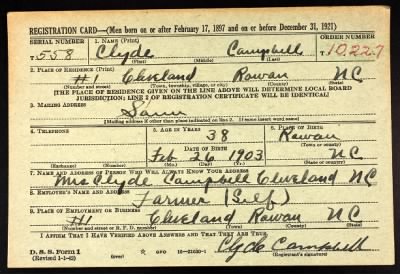 REGISTRATION CARD—(Men born on or after February 17, 1897 and on or before December 31, 1921)
SERIAL NUMBER 1. NAME (Print) ORDER NUMBER
558 Clyde Campbell 10,227
(First) (Middle) (Last)
2. PLACE OF RESIDENCE (Print)
#1 Cleveland Rowan NC
(Number and street) (Town, township, village, or city) (County) (State)
[THE PLACE OF RESIDENCE GIVEN ON THE LINE ABOVE WILL DETERMINE LOCAL BOARD
JURISDICTION; LINE 2 OF REGISTRATION CERTIFICATE WILL BE IDENTICAL]
3. MAILING ADDRESS
Same
[Mailing address if other than place indicated on line 2. If same insert word same]
4. TELEPHONE 5. AGE IN YEARS 6. PLACE OF BIRTH
38 Rowan
DATE OF BIRTH (Town or county)
Feb 26 1903 NC
(Exchange) (Number) (Mo.) (Day) (Yr.) (State or country)
7. NAME AND ADDRESS OF PERSON WHO WILL ALWAYS KNOW YOUR ADDRESS
Mrs Clyde Campbell Cleveland NC
8. EMPLOYER'S NAME AND ADDRESS
Farmer (Self)
9. PLACE OF EMPLOYMENT OR BUSINESS
#1 Cleveland Rowan NC
(Number and street or R. F. D. number) (Town) (County) (State)
I AFFIRM THAT I HAVE VERIFIED ABOVE ANSWERS AND THAT THEY ARE TRUE.
D. S. S. Form 1
(Revised 1-1-42) (over) GPO 16—21630-1 Clyde Campbell
(Registrant's signature)